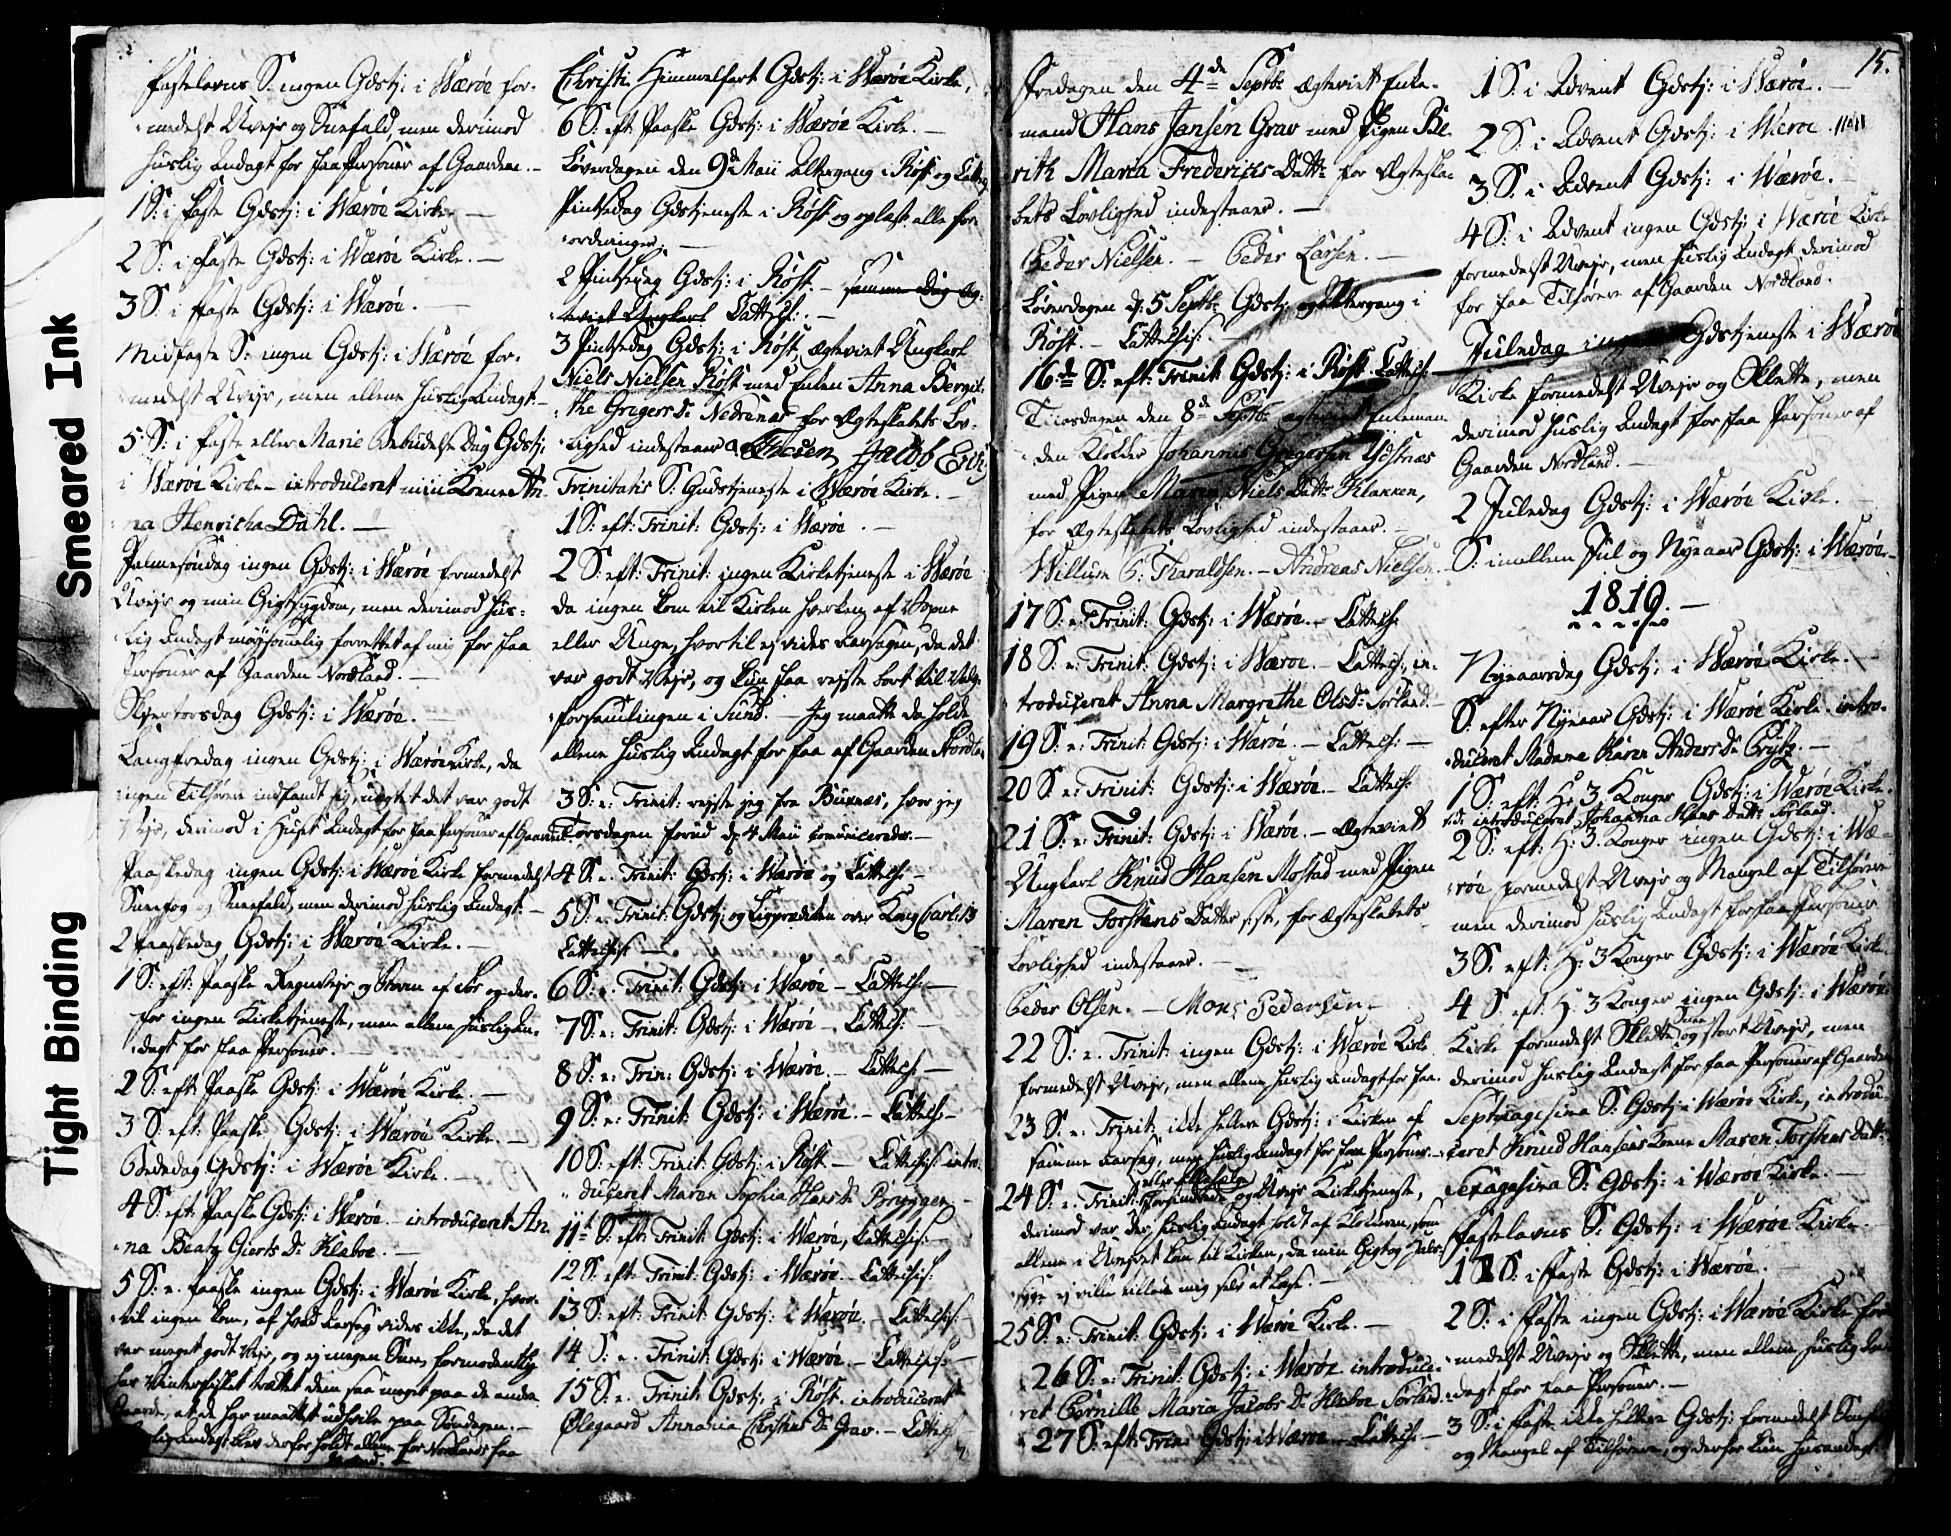 Smeared Ink
Tight Binding
Fastelavns S: ingen Gdstj: i Wærøe for-
medelst Uvejr og Sneefald, men derimod
huslig Andagt for faa Personer af Gaarden.
1 S: i Faste Gdstj: i Wærøe Kirke. —
2 S: i Faste Gdstj: i Wærøe Kirke. —
3 S: i Faste Gdstj: i Wærøe.
Midfaste S: ingen Gdstj: i Wærøe for-
medelst Uvejr, men allene huslig Andagt. —
5 S: i Faste eller Mariæ Bebudelse Dag Gdstj:
i Wærøe Kirke — introduceret min Kone An-
na Henricha Dahl. —
Palmesøndag ingen Gdstj: i Wærøe formedelst
Uvejr og min Gigtsygdom, men derimod hus-
lig Andagt møysommelig forrettet af mig for faa
Personer af Gaarden Nordland. —
Skjertorsdag Gdstj: i Wærøe. —
Langfredag ingen Gdstj: i Wærøe Kirke, da
ingen Tilhørere indfandt sig, uagtet det var godt
Vejr, derimod i Huset Andagt for faa Personer af Gaarden.
Paaskedag ingen Gdstj: i Wærøe Kirke formedelst
Sneefog og Sneefald, men derimod huslig Andagt. —
2 Paaskedag Gdstj: i Wærøe Kirke. —
1 S: eft: Paaske Regnvejr og Storm af og der-
for ingen Kirketjeneste, men allene huslig An-
dagt for faa Personer. —
2 S: eft: Paaske Gdstj: i Wærøe Kirke. —
3 S: eft: Paaske Gdstj: i Wærøe Kirke. —
Bededag Gdstj: i Wærøe Kirke. —
4 S: eft: Paaske Gdstj: i Wærøe. — introduceret An-
na Beata Gierts D: Klaboe. —
5 S: e: Paaske ingen Gdstj: i Wærøe Kirke, hvor-
til ingen kom, af hvad Aarsag vides ikke, da det
var meget godt Vejr, og ej megen Snee, formodentlig
har Vinterfisket trættet dem saa meget paa de andre
Gaarde, at de har maattet udhvile paa Søndagen. —
Andagt blev derfor holdt allene for Nordlands faa
Christi Himmelfart Gdstj: i Wærøe Kirke.
6 S: eft: Paaske Gdstj: i Wærøe Kirke. —
Løverdagen den 9de Maii Altergang i Røst og
Pintsedag Gdstjeneste i Røst og oplæst alle For-
ordninger. —
2 Pintsedag Gdstj: i Røst. — samme Dag Æg-
teviet Ungkarl Cattechs: —
3 Pintsedag Gdstj: i Røst, Ægteviet Ungkarl
Niels Nielsen Røst med Enken Anna Bergit-
the Gregers D: Nedrenæs for Ægteskabets Lov-
lighed indestaaer Jacob
Trinitatis S: Gudstjeneste i Wærøe Kirke. —
1 S: eft: Trinit: Gdstj: i Wærøe. —
2 S: eft: Trinit: ingen Kirketjeneste i Wærøe
da ingen kom til Kirken hverken af Voxne
eller Unge, hvortil ej vides Aarsagen, da det
var godt Vejr, og kun faa rejste bort til Valg-
forsamlingen i Sund. — Jeg maatte da holde
allene huslig Andagt for faa af Gaarden Nordla-
3 S: e: Trinit: rejste jeg fra Buxnæs, hvor jeg
Torsdagen forud d: 4 communicerede. —
4 S: e: Trinit: Gdstj: i Wærøe og Cattechs: —
5 S: e: Trinit: Gdstj: og Ligprædiken over Kong Carl: 13
Cattechs: —
6 S: e: Trinit: Gdstj: i Wærøe — Cattechs: —
7 S: e: Trinit: Gdstj: i Wærøe — Cattechs: —
8 S: e: Trin: Gdstj: i Wærøe. — Cattechs: —
9 S: e: Trinit: Gdstj: i Wærøe. — Cattechs: —
10 S: eft: Trinit: Gdstj: i Røst — Cattechs: intro-
duceret Maren Sophia Hans D: Bryggen —
11te S: eft: Trinit: Gdstj: i Wærøe, Cattechs: —
12 S: eft: Trinit: Gdstj: i Wærøe. — Cattechs:
13 S: eft: Trinit: Gdstj: i Wærøe. — Cattechs: —
14 S: e: Trinit: Gdstj: i Wærøe. — Cattechs: —
15 S: e: Trinit: Gdstj: i Røst. introduceret
Ølegaard Annania Christens D: Grav. — Cattechs:
15.
Fredagen den 4de Septbr Ægteviet Enke-
mand Hans Jansen Grav med Pigen Be-
rith Maria Fredericks Dattr: for Ægteska-
bets Lovlighed indestaaer. —
Peder Nielsen. — Peder Larsen. —
Løverdagen d: 5 Septbr Gdstj: og Altergang i
Røst. — Cattechs: —
16de S: eft: Trinit: Gdstj: i Røst Cattechs:
Tiisdagen den 8de Septbr ægteviet Enkeman-
den Klokker Johannes Gregersen Ydstnæs
med Pigen Maren Niels Dattr: Klakken,
for Ægteskabets Lovlighed indestaaer. —
Willum C: Tharaldsen. — Andreas Nielsen.
17 S: e: Trinit: Gdstj: i Wærøe. — Cattechs:
18 S: e: Trinit: Gdstj: i Wærøe. — Cattechs: in-
troduceret Anna Margrethe Ols D: Sørland. —
19 S: e: Trinit: Gdstj: i Wærøe. — Cattechs: —
20 S: e: Trinit: Gdstj: i Wærøe. — Cattechs:
21 S: e: Trinit: Gdstj: i Wærøe. — Ægteviet
Ungkarl Knud Hansen Mostad med Pigen
Maren Torstens Datter for Ægteskabets
Lovlighed indestaaer. —
Peder Olsen. — Mons Pedersen —
22 S: e: Trinit: ingen Gdstj: i Wærøe Kirke
formedelst Uvejr, men allene huslig Andagt for faa.
23 S: e: Trinit: ikke heller Gdstj: i Kirken af
samme Aarsag, men huslig Andagt for faa Personer. —
24 S: e: Trinit: og Uvejr Kirketjeneste,
derimod var der huslig Andagt holdt af Klokkeren, som
allene i Uvejret kom til Kirken, da min Gigt og Hals-
syge ej ville tillade mig selv at læse. —
25 S: e: Trinit: Gdstj: i Wærøe Kirke. —
26 S: e: Trinit: Gdstj: i Wærøe introduce-
ret Pernille Maria Jacobs D: Klaboe Sørland.
27 S: eft: Trin: Gdstj: i Wærøe — Cattechs: —
1 S: i Advent Gdstj: i Wærøe. —
2 S: i Advent Gdstj: i Wærøe.
3 S: i Advent Gdstj: i Wærøe. —
4 S: i Advent ingen Gdstj: i Wærøe Kirke
formedelst Uvejr, men huslig Andagt derimod
for faa Tilhørere af Gaarden Nordland.
Juledag ingen Gdstjeneste i Wærøe
Kirke formedelst Uvejr og Slette, men
derimod huslig Andagt for faa Personer af
Gaarden Nordland. —
2 Juledag Gdstj: i Wærøe Kirke. —
S: imellem Jul og Nyeaar Gdstj: i Wærøe. —
1819. —
Nyeaarsdag Gdstj: i Wærøe Kirke. —
S: efter Nyeaar Gdstj: i Wærøe Kirke. intro-
duceret Madame Karen Anders D: Prytz. —
1 S: eft: H: 3 Konger Gdstj: i Wærøe Kirke.
introduceret Johanna Hans Dattr: Sørland.
2 S: eft: H: 3 Konger ingen Gdstj: i Wæ-
røe formedelst Uvejr og Mangel af Tilhørere
men derimod huslig Andagt for faa Personer
3 S: eft: H: 3 Konger Gdstj: i Wærøe Kirke
4 S: eft: H: 3 Konger ingen Gdstj: i Wærøe
Kirke formedelst Slette, Snee og stort Uvejr, men
derimod huslig Andagt for faa Personer af Gaarden
Septuagesima S: Gdstj: i Wærøe Kirke, introdu-
ceret Knud Hansens Kone Maren Torstens Datt:
Sexagesima S: Gdstj: i Wærøe Kirke. —
Fastelavns S: Gdstj: i Wærøe Kirke.
1 S: i Faste Gdstj: i Wærøe. —
2 S: i Faste ingen Gdstj: i Wærøe Kirke for-
medelst Uvejr og Slette, men allene huslig An-
dagt for faa Personer. —
3 S: i Faste ikke heller Gdstj: formedelst
og Mangel af Tilhørere, og derfor kun Husandagt.